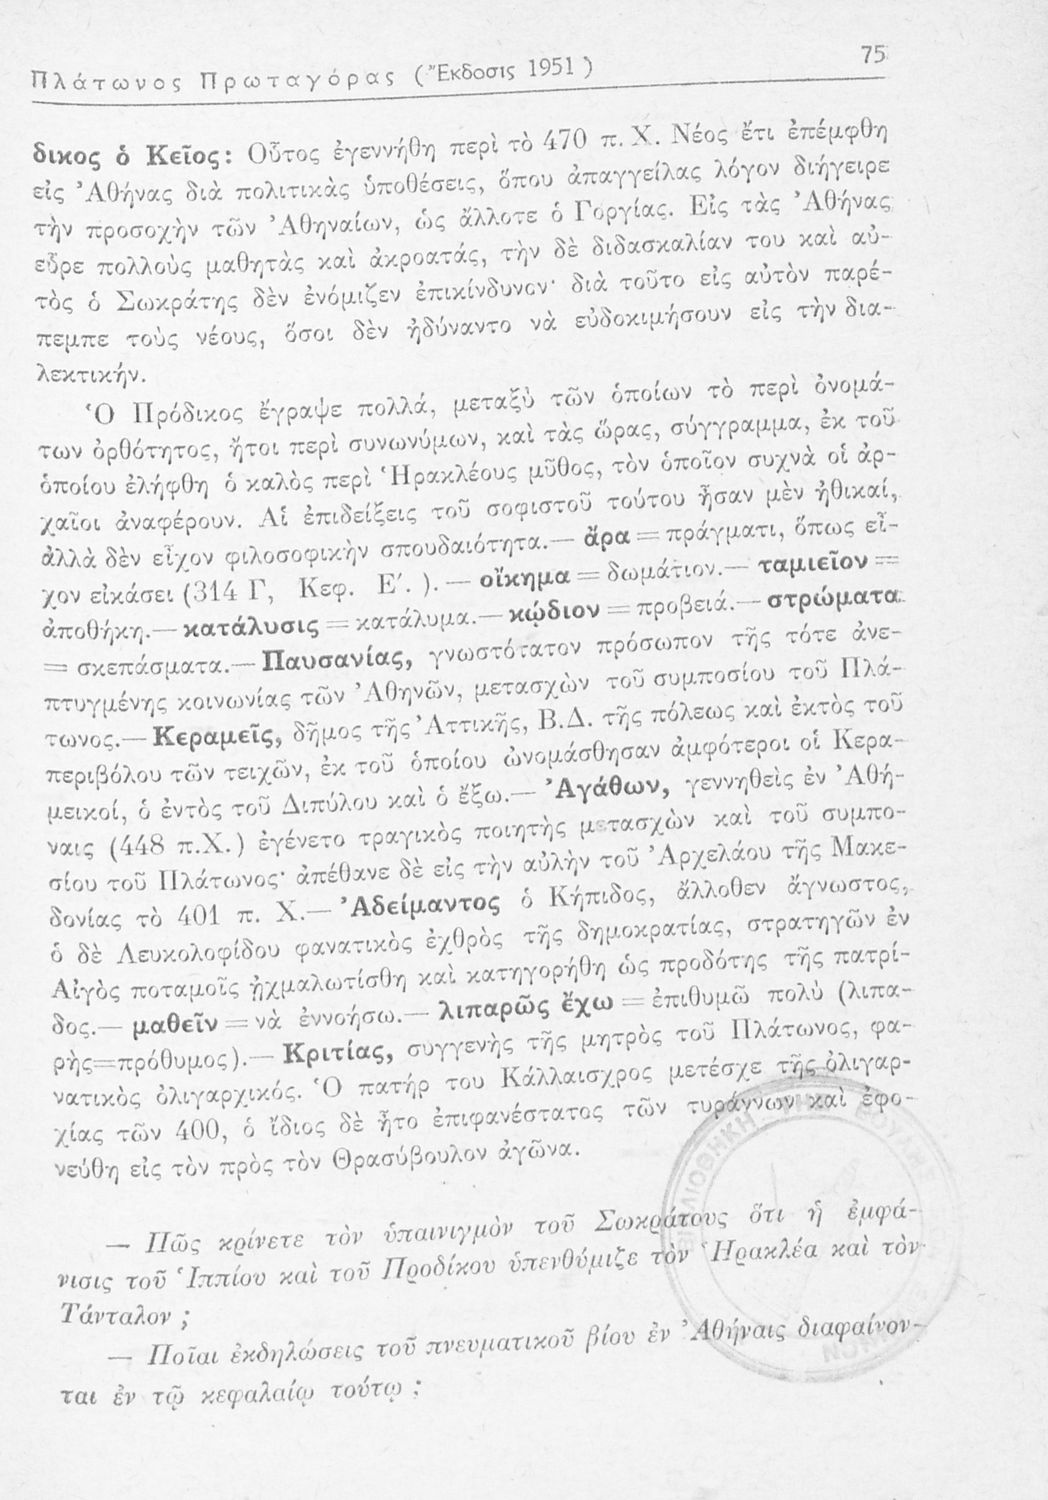 Πλάτωνος Πρωταγόρας (Ἔκδοσις 1951)
75
δικος ὁ Κεῖος: Οὗτος ἐγεννήθη περὶ τὸ 470 π. Χ. Νέος ἔτι ἐπέμφθη
εἰς Ἀθήνας διὰ πολιτικὰς ὑποθέσεις, ὅπου ἀπαγγείλας λόγον διήγειρε
τὴν προσοχὴν τῶν Ἀθηναίων, ὡς ἄλλοτε ὁ Γοργίας. Εἰς τὰς Ἀθήνας
εὗρε πολλοὺς μαθητὰς καὶ ἀκροατάς, τὴν δὲ διδασκαλίαν του καὶ αὐ-
τὸς ὁ Σωκράτης δὲν ἐνόμιζεν ἐπικίνδυνον· διὰ τοῦτο εἰς αὐτὸν παρέ-
πεμπε τοὺς νέους, ὅσοι δὲν ἠδύναντο νὰ εὐδοκιμήσουν εἰς τὴν δια-
λεκτικήν.
Ὁ Πρόδικος ἔγραψε πολλά, μεταξὺ τῶν ὁποίων τὸ περὶ ὀνομά-
των ὀρθότητος, ἤτοι περὶ συνωνύμων, καὶ τὰς ὥρας, σύγγραμμα, ἐκ τοῦ
ὁποίου ἐλήφθη ὁ καλὸς περὶ Ἡρακλέους μῦθος, τὸν ὁποῖον συχνὰ οἱ ἀρ-
χαῖοι ἀναφέρουν. Αἱ ἐπιδείξεις τοῦ σοφιστοῦ τούτου ἦσαν μὲν ἠθικαί,
ἀλλὰ δὲν εἶχον φιλοσοφικὴν σπουδαιότητα.— ἄρα = πράγματι, ὅπως εἶ-
χον εἰκάσει (314 Γ, Κεφ. Ε΄. ).— οἴκημα = δωμάτιον.— ταμιεῖον =
ἀποθήκη.— κατάλυσις = κατάλυμα.— κῴδιον = προβειά.— στρώματα
= σκεπάσματα.— Παυσανίας, γνωστότατον πρόσωπον τῆς τότε ἀνε-
πτυγμένης κοινωνίας τῶν Ἀθηνῶν, μετασχὼν τοῦ συμποσίου τοῦ Πλά-
τωνος.— Κεραμεῖς, δῆμος τῆς Ἀττικῆς, Β.Δ. τῆς πόλεως καὶ ἐκτὸς τοῦ
περιβόλου τῶν τειχῶν, ἐκ τοῦ ὁποίου ὠνομάσθησαν ἀμφότεροι οἱ Κερα-
μεικοί, ὁ ἐντὸς τοῦ Διπύλου καὶ ὁ ἔξω.— Ἀγάθων, γεννηθεὶς ἐν Ἀθή-
ναις (448 π.Χ.) ἐγένετο τραγικὸς ποιητὴς μετασχὼν καὶ τοῦ συμπο-
σίου τοῦ Πλάτωνος· ἀπέθανε δὲ εἰς τὴν αὐλὴν τοῦ Ἀρχελάου τῆς Μακε-
δονίας τὸ 401 π. Χ.— Ἀδείμαντος ὁ Κήπιδος, ἄλλοθεν ἄγνωστος,
ὁ δὲ Λευκολοφίδου φανατικὸς ἐχθρὸς τῆς δημοκρατίας, στρατηγῶν ἐν
Αἰγὸς ποταμοῖς ᾐχμαλωτίσθη καὶ κατηγορήθη ὡς προδότης τῆς πατρί-
δος.— μαθεῖν = νὰ ἐννοήσω.— λιπαρῶς ἔχω = ἐπιθυμῶ πολὺ (λιπα-
ρὴς=πρόθυμος).— Κριτίας, συγγενὴς τῆς μητρὸς τοῦ Πλάτωνος, φα-
νατικὸς ὀλιγαρχικός. Ὁ πατήρ του Κάλλαισχρος μετέσχε τῆς ὀλιγαρ-
χίας τῶν 400, ὁ ἴδιος δὲ ἦτο ἐπιφανέστατος τῶν τυράννων καὶ ἐφο-
νεύθη εἰς τὸν πρὸς τὸν Θρασύβουλον ἀγῶνα.
— Πῶς κρίνετε τὸν ὑπαινιγμὸν τοῦ Σωκράτους ὅτι ἡ ἐμφά-
νισις τοῦ Ἱππίου καὶ τοῦ Προδίκου ὑπενθύμιζε τὸν Ἡρακλέα καὶ τὸν
Τάνταλον ;
— Ποῖαι ἐκδηλώσεις τοῦ πνευματικοῦ βίου ἐν Ἀθήναις διαφαίνον-
ται ἐν τῷ κεφαλαίῳ τούτῳ ;
ΒΙΒΛΙΟΘΗΚΗ ΤΗΣ ΒΟΥΛΗΣ